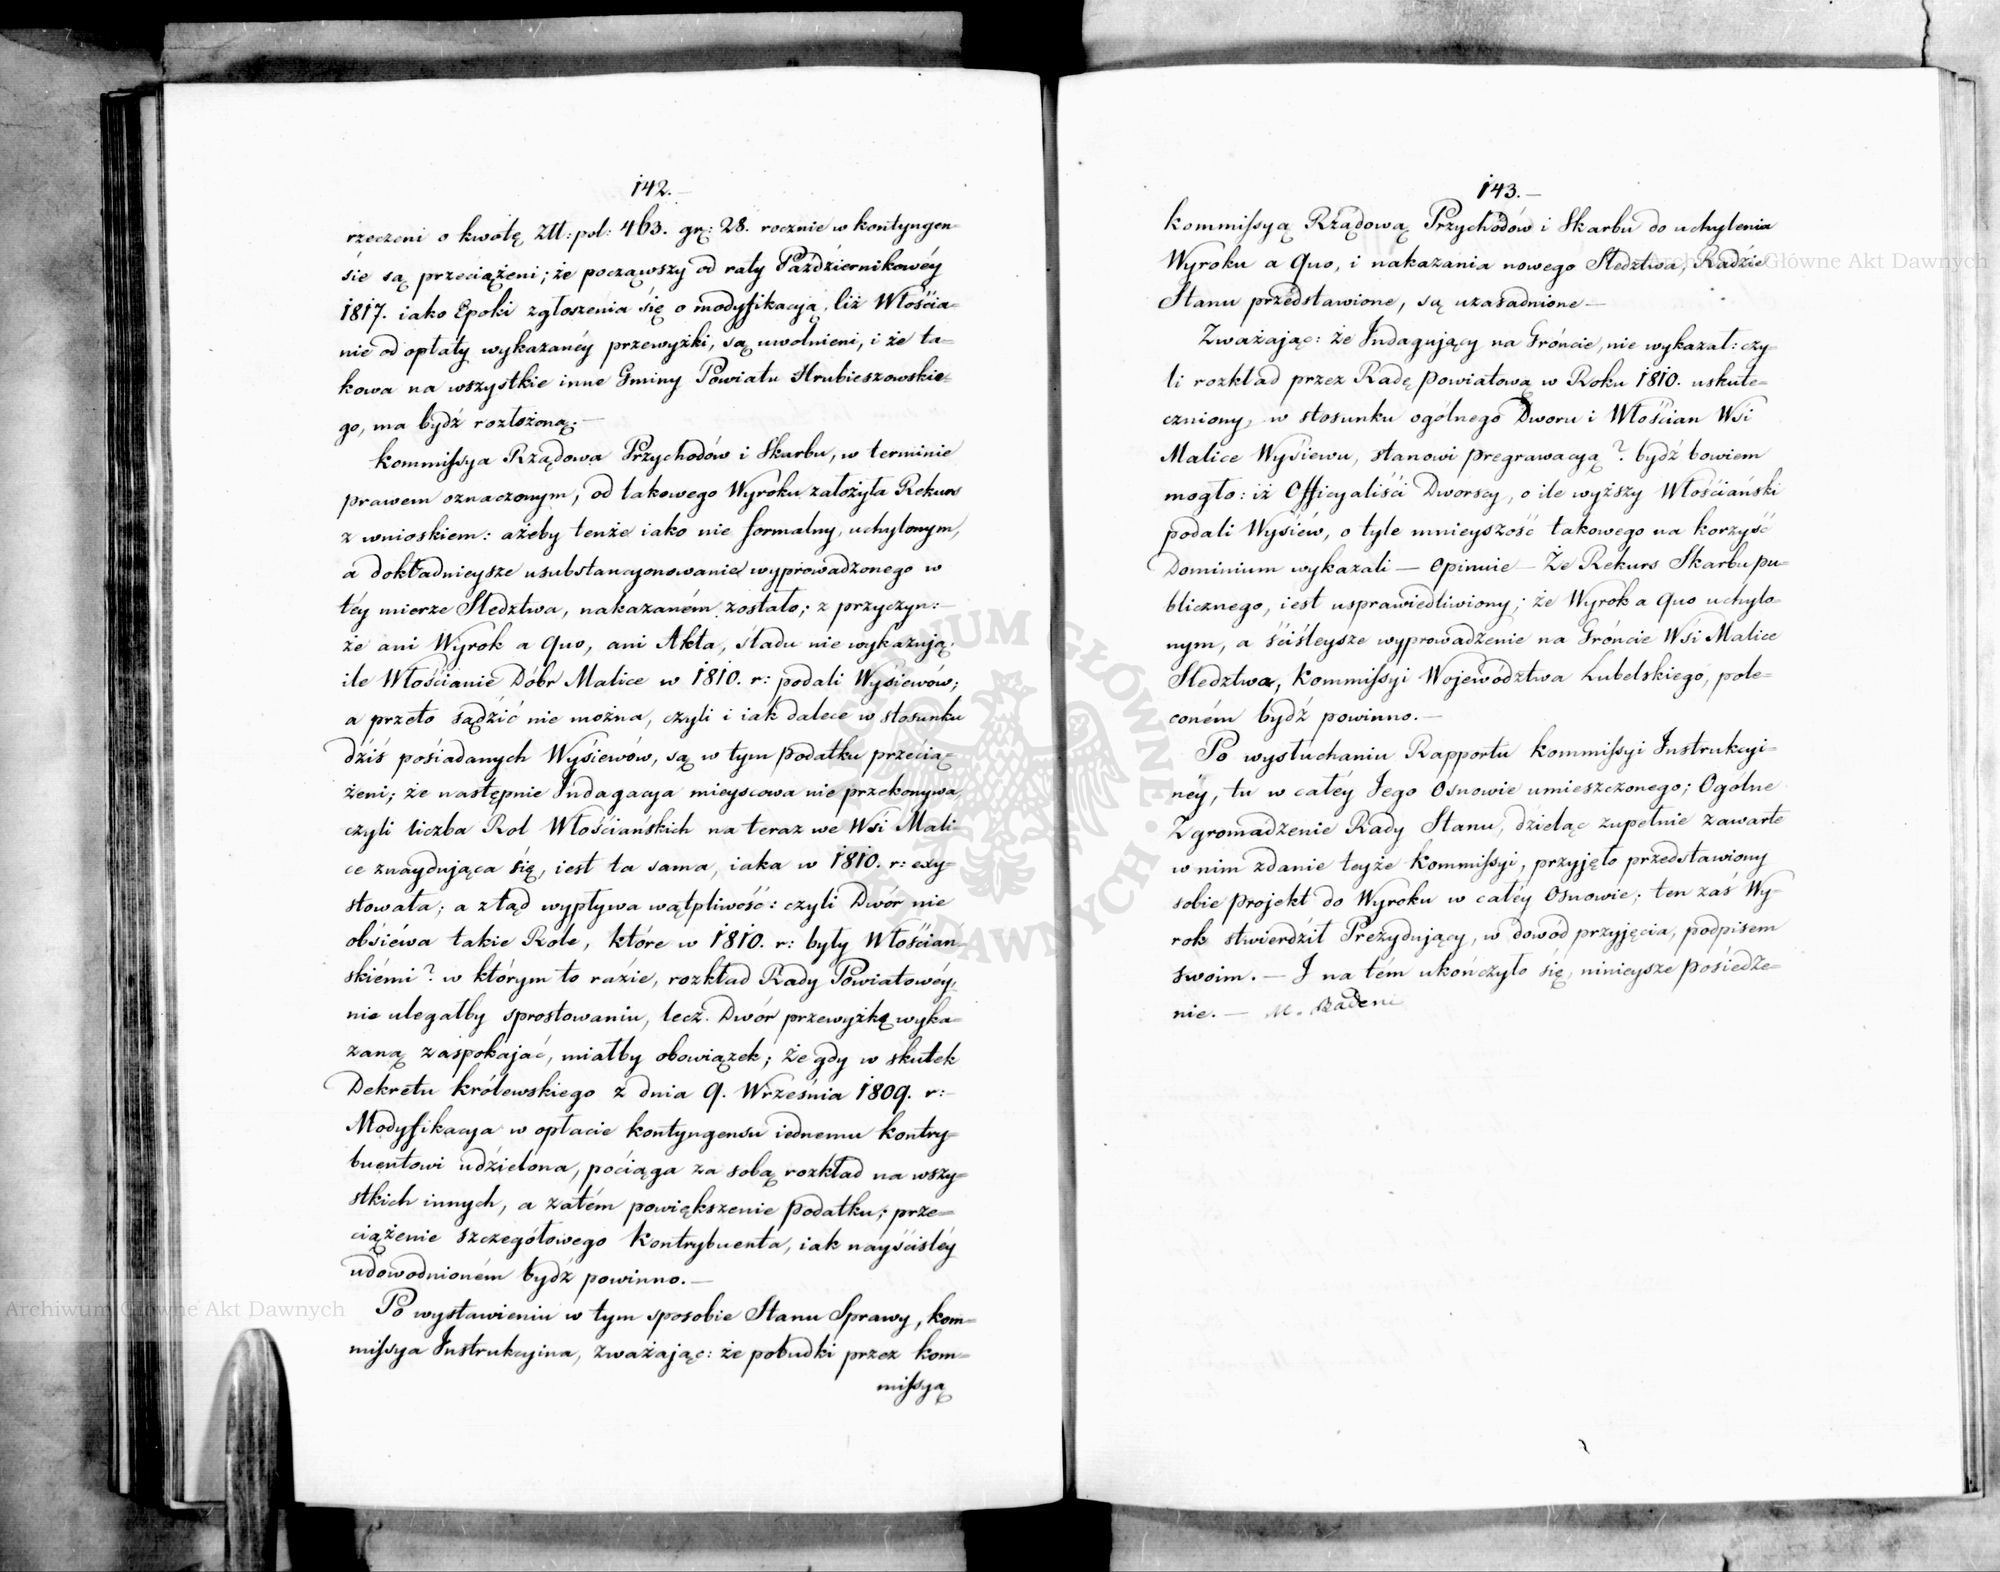 142.
rzeczeni o kwotę Złł: pol: 463. gr: 28. rocznie w kontyngen-
sie są przeciążeni; że począwszy od raty Październikowéy
1817. iako Epoki zgłoszenia się o modyfikacyą, liż Włościa-
nie od opłaty wykazanéy przewyżki, są uwolnieni, i że ta-
kowa na wszystkie inne Gminy Powiatu Hrubieszowskie-
go, ma bydź rozłożoną.—
Kommissya Rządowa Przychodów i Skarbu, w terminie
prawem oznaczonym, od takowego Wyroku założyła Rekurs
z wnioskiem: ażeby tenże iako nie formalny, uchylonym,
a dokładnieysze usubstancyonowanie wyprowadzonego w
téy mierze Sledztwa, nakazaném zostało; z przyczyn:—
że ani Wyrok a Quo, ani Akta, śladu nie wykazują,
ile Włościanie Dóbr Malice w 1810. r: podali Wysiewów;
a przeto sądzić nie można, czyli i iak dalece w stosunku
dziś posiadanych Wysiewów, są w tym podatku przecią-
żeni; że następnie Indagacya mieyscowa nie przekonywa,
czyli liczba Rol Włościańskich na teraz we Wsi Mali-
ce znaydująca się, iest ta sama, iaka w 1810. r: exy-
stowała; a ztąd wypływa wątpliwość: czyli Dwór nie
obsiéwa takie Role, które w 1810. r: były Włościan-
skiémi? w którym to razie, rozkład Rady Powiatowéy,
nie ulegałby sprostowaniu, lecz Dwór przewyżkę wyka-
zaną zaspokajać, miałby obowiązek; że gdy w skutek
Dekretu królewskiego z dnia 9. Września 1809. r:—
Modyfikacya w opłacie kontyngensu iednemu kontry-
buentowi udzielona, pociąga za sobą rozkład na wszy-
stkich innych, a zatém powiększenie podatku; prze-
ciążenie szczegółowego Kontrybuenta, iak nayściśléy
udowodnioném bydź powinno.—
Po wystawieniu w tym sposobie Stanu Sprawy, kom-
missya Instrukcyina, zważając: że pobudki przez kom-
missyą
143.—
kommissyą Rządową Przychodów i Skarbu do uchylenia
Wyroku a Quo, i nakazania nowego Sledztwa, Radzie
Stanu przedstawione, są uzasadnione—
Zważając: że Indagujący na Gróncie, nie wykazał: czy-
li rozkład przez Radę Powiatową w Roku 1810. uskute-
czniony, w stosunku ogólnego Dworu i Włościan Wsi
Malice Wysiewu, stanowi pregrawacyą? bydź bowiem
mogło: iż Officyaliści Dworscy, o ile wyższy Włościański
podali Wysiéw, o tyle mnieyszość takowego na korzyść
Dominium wykazali — opinuie — Że Rekurs Skarbu pu-
blicznego, iest usprawiedliwiony; że Wyrok a Quo uchylo-
nym, a ściśleysze wyprowadzenie na Gróncie Wsi Malice
Sledztwa, Kommissyi Województwa Lubelskiego, pole-
coném bydź powinno.—
Po wysłuchaniu Rapportu kommissyi Instrukcyi-
néy, tu w całéy Jego Osnowie umieszczonego; Ogólne
Zgromadzenie Rady Stanu, dzieląc zupełnie zawarte
w nim zdanie teyże kommissyi, przyjęło przedstawiony
sobie projekt do Wyroku w całéy Osnowie; ten zaś Wy-
rok stwierdził Prezydujący, w dowód przyjęcia, podpisem
swoim.— I na tém ukończyło się, ninieysze posiedze-
nie.— M. Badeni
Archiwum Główne Akt Dawnych
Archiwum Główne Akt Dawnych
ARCHIWUM GŁÓWNE AKT DAWNYCH